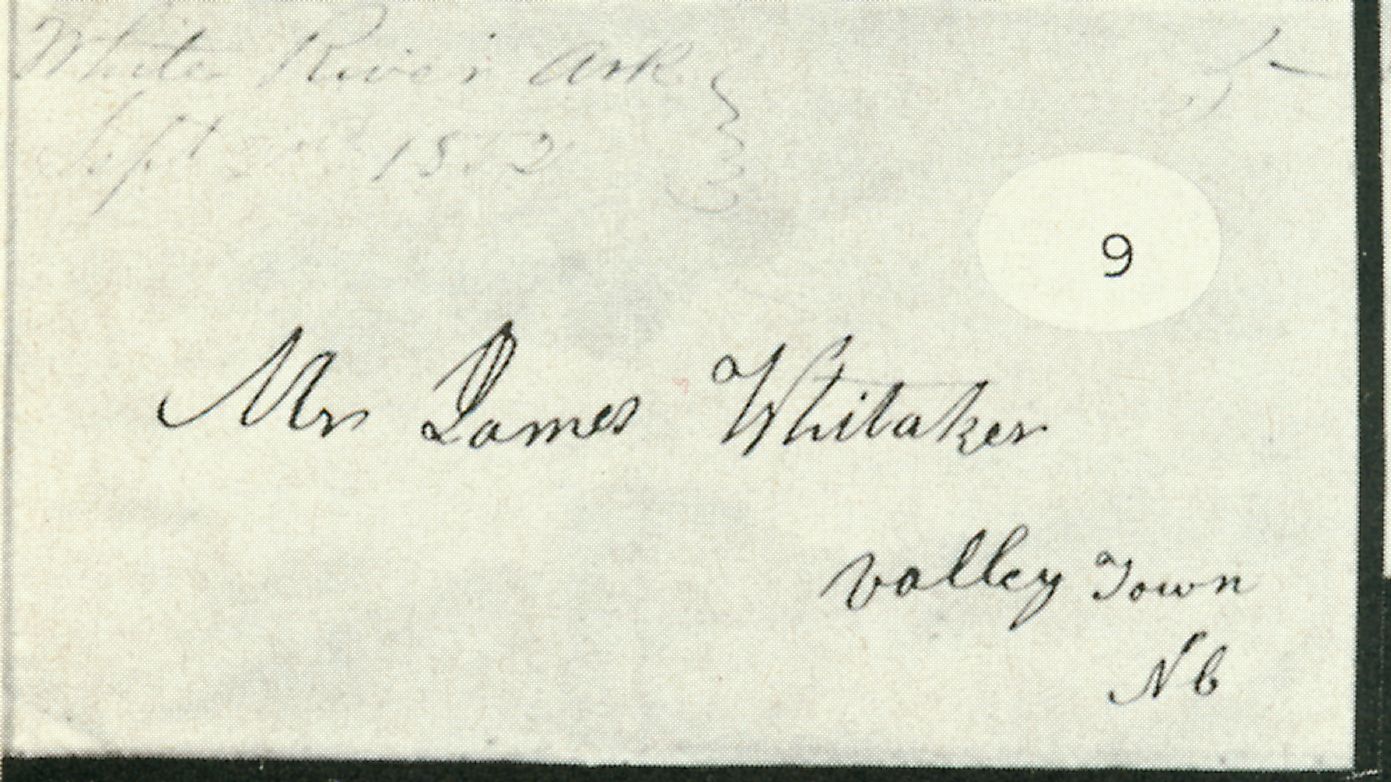 White River Ark
Sept 1852
5
9
Mr James Whitaker
Valley Town
NC